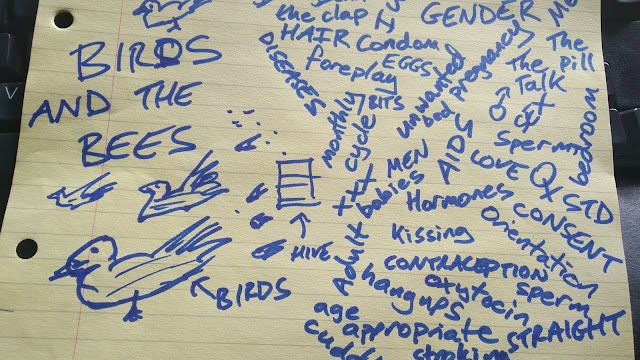 BIRDS
AND THE
BEES
HIVE
BIRDS
the clap
HAIR Condom
foreplay
EGGS
DISEASES
GENDER
The
pill
The
Talk
monthly
cycle
BITS
unwanted
pregnancy
bed
bedroom
sperm
MEN
AIDS
LOVE
STD
XXX
babies
Hormones
CONSENT
Adult
Kissing
Orientation
CONTRACEPTION
oxytocin
sperm
hangups
age
appropriate
STRAIGHT